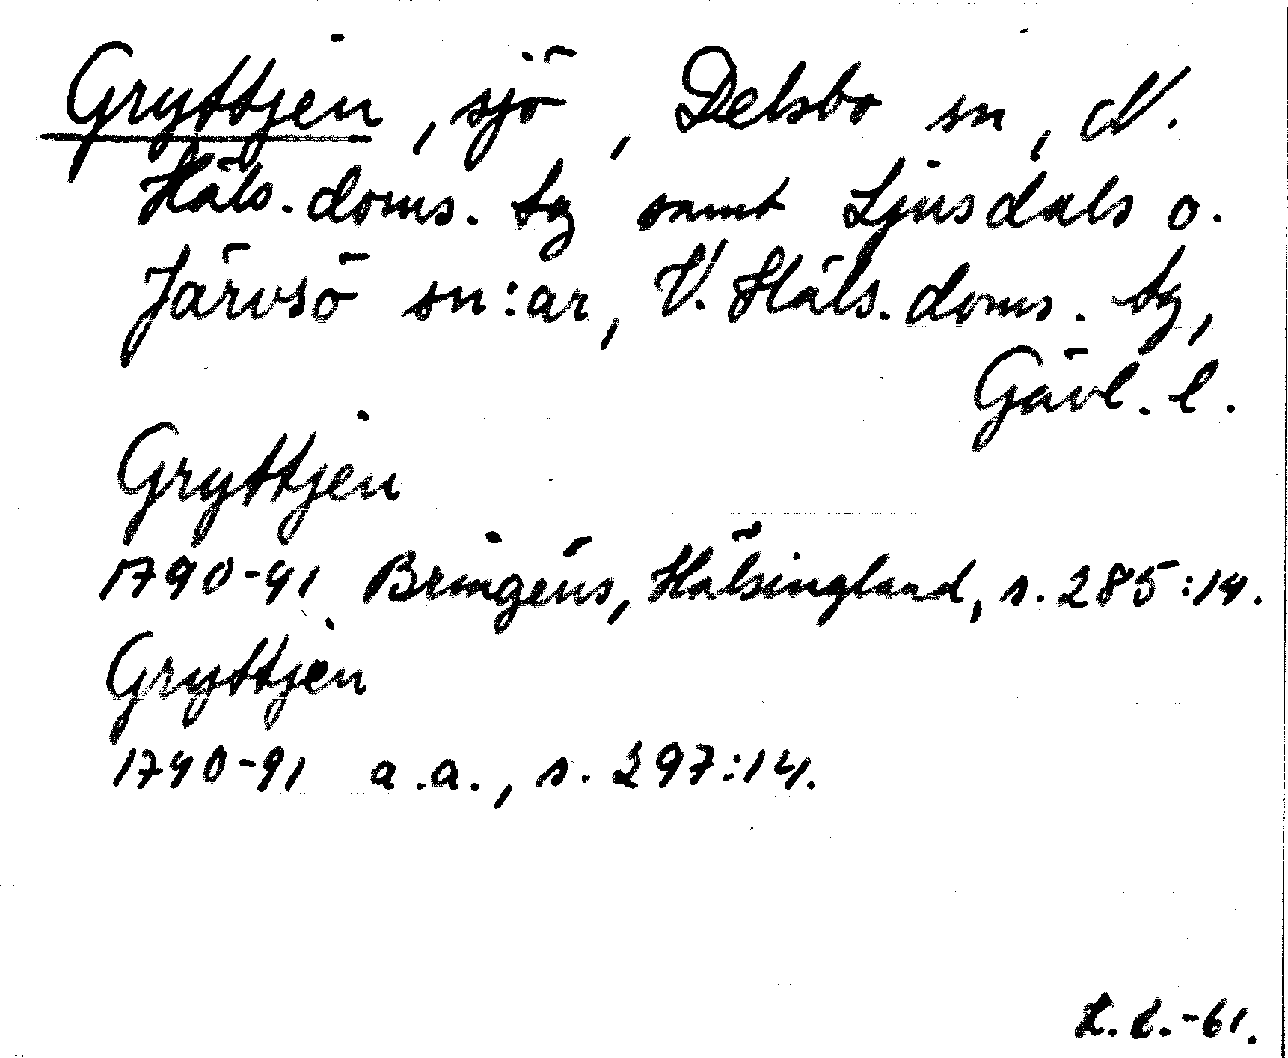 Gryttjen, sjö, Delsbo sn, N.
Häls. doms. tg samt Ljusdals o.
Järvsö sn:ar, V. Häls. doms. tg,
Gävl. l.
Gryttjen
1790-91 Bringéus, Hälsingland, s. 285:14.
Gryttjen
1790-91 a.a., s. 297:14.
L.L.-61.